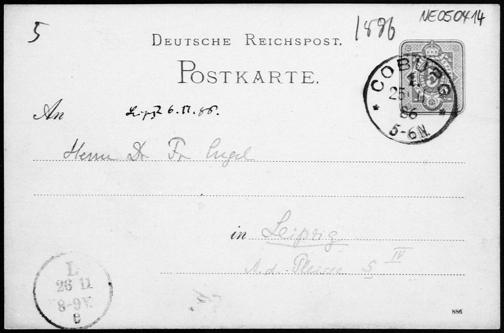 5
1886
NE050414
DEUTSCHE REICHSPOST.
POSTKARTE.
COBURG
1.
25 11
86
5-6N.
An
Leipz. 6. 11. 86.
Herrn Dr Fr Engel
in Leipzig
A. d. Pleisse 5 IV
L
26 11
8-9V.
886